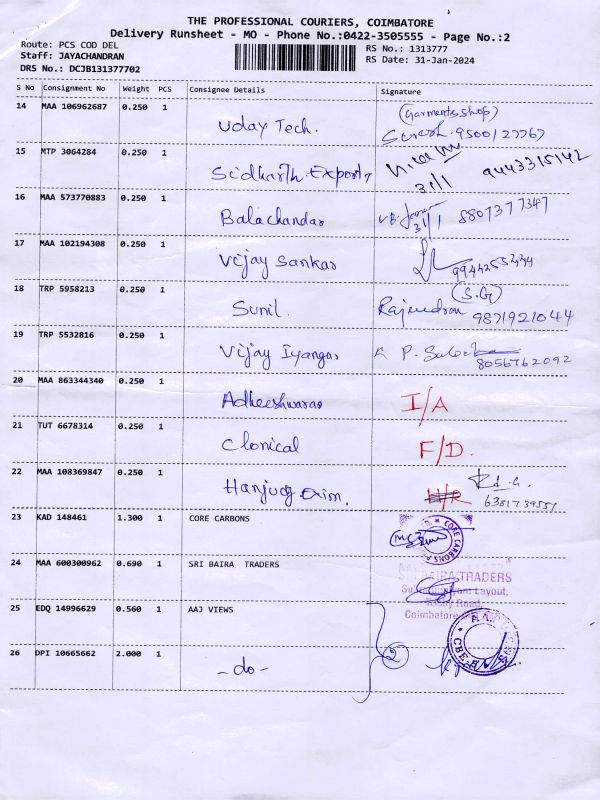 THE PROFESSIONAL COURIERS, COIMBATORE
Delivery Runsheet - MO - Phone No.:0422-3505555 - Page No.:2
Route: PCS COD DEL
RS No.: 1313777
Staff: JAYACHANDRAN
RS Date: 31-Jan-2024
DRS No.: DCJB131377702
S No Consignment No Weight PCS Consignee Details Signature
14 MAA 106962687 0.250 1 Uday Tech. (Garments shop)
Suresh. 9500127767
15 MTP 3064284 0.250 1 Sidharth Exports
31/1 9443315142
16 MAA 573770883 0.250 1 Balachandar
31/1 8807377347
17 MAA 102194308 0.250 1 Vijay Sankar
18 TRP 5958213 0.250 1 Sunil. (S.G)
Rajendran 9871921044
19 TRP 5532816 0.250 1 Vijay Iyangar
8056762092
20 MAA 863344340 0.250 1 Adheeshwarao I/A
21 TUT 6678314 0.250 1 Clonical F/D.
22 MAA 108369847 0.250 1 Exim.
23 KAD 148461 1.300 1 CORE CARBONS
CORE CARBONS
24 MAA 600300962 0.690 1 SRI BAIRA TRADERS
TRADERS
Layout,
Road,
Coimbatore
25 EDQ 14996629 0.560 1 AAJ VIEWS
2
26 DPI 10665662 2.000 1 -do-